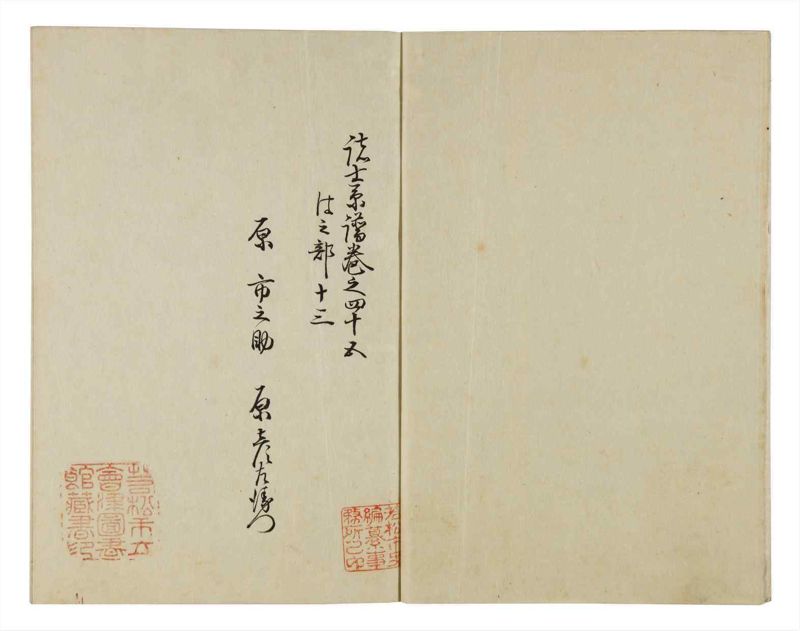 諸士系譜巻之四十五
は之部十三
原 市之助 原 彦左衛門
若松市立
會津圖書
館藏書印
若松市史
編纂事
務所之印